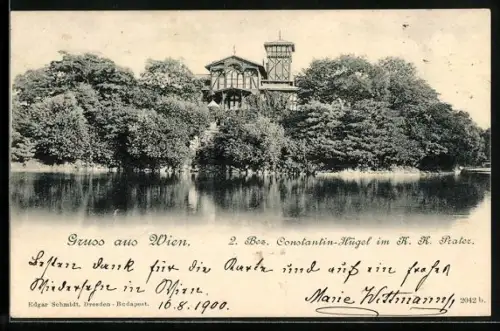 Gruss aus Wien. 2. Bez. Constantin-Hügel im K. K. Prater.
Besten Dank für die Karte und auf ein frohes
Wiedersehn in Wien.
16.8.1900. Marie Wittmann
Edgar Schmidt, Dresden-Budapest. 2042 b.